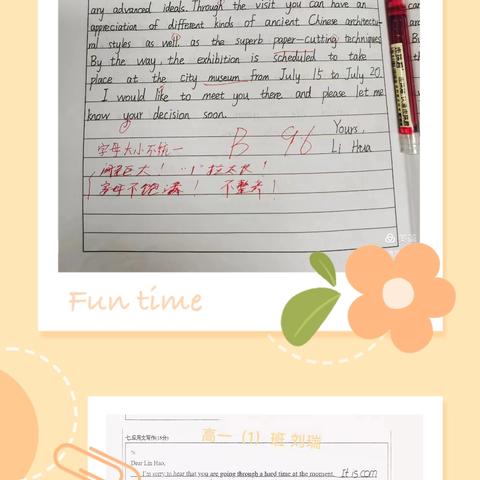 any advanced ideals. Through the visit you can have an
appreciation of different kinds of ancient Chinese architectu-
ral styles as well, as the superb paper-cutting techniques
By the way, the exhibition is scheduled to take
place at the city museum from July 15 to July 20.
I would like to meet you there and please let me
know your decision soon.
Yours,
Li Hua
字母大小不统一
B 96
间距巨大！ "l"拉太长！
字母不饱满！ 不整齐！
Fun time
七.应用文写作(15分)
高一 (1) 班 刘瑞
Dear Lin Hao,
I'm sorry to hear that you are going through a hard time at the moment. It is com